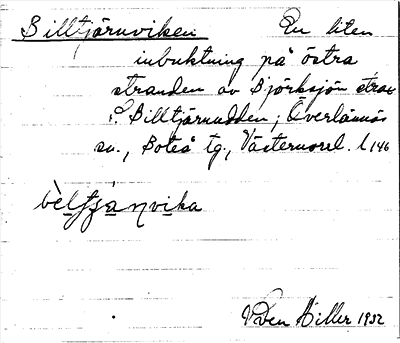 Billtjärnviken En liten
inbuktning på östra
stranden av Björksjön strax
S. Billtjärnudden; Överlännäs
sn., Boteå tg., Västernorrl. l.
bèltjànvika
Hiller 1932